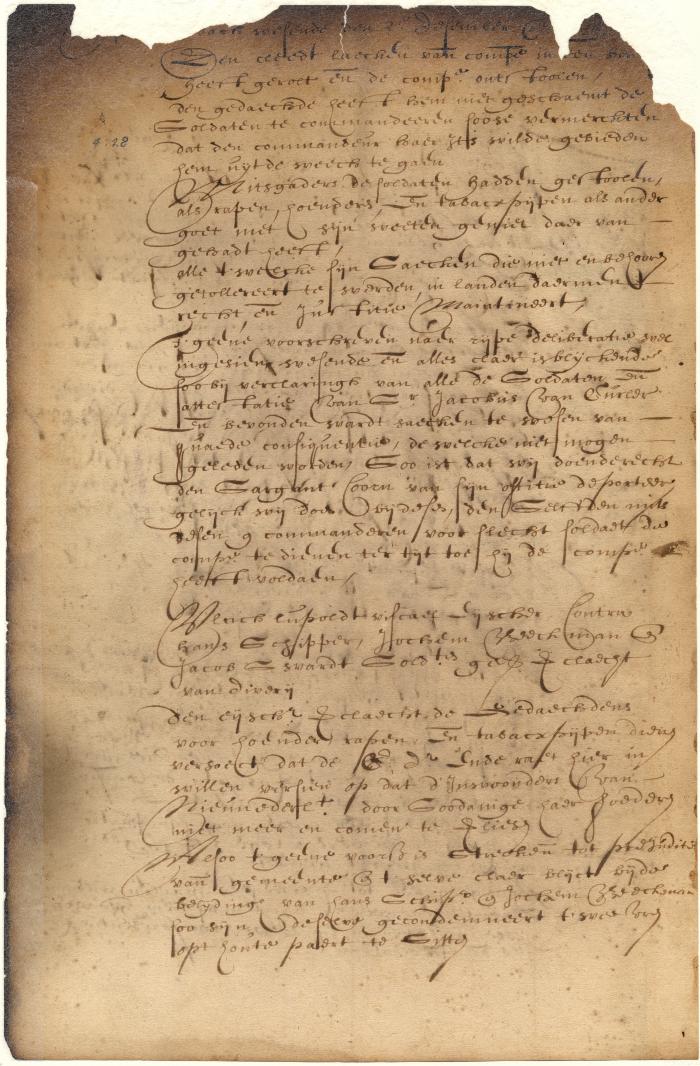 wesende den 2e desember
Den cleedt laecken van compe in
heeft gerolt en de compe onts toolen,
den gedaechde heeft hem niet geschaemt de
Soldaten te commandeeren soose vermerckten
4:28
dat den commandeur haer yts wilde gebieden
hem uyt de weech te gaen
Mitsgaders de soldaten hadden gestoolen,
als rapen, hoenders, En tabacxpijpen als ander
goet met sijn weeten geniet daer van
gehadt heeft,
alle t welcke sijn Saecken die niet en behoore
getollereert te werden, in landen daermen
recht en Justitie Maintineert,
T geene voorschreven naer rype deliberatie wel
ingesien wesende en alles claer is blyckende
soo bij verclaringh van alle de Soldaten En
attestatie Van Sr Jacobus Van Curler
En bevonden wardt saecken te wesen van
quaede consiquentie, de welcke niet mogen
geleden worden, Soo ist dat wij doende recht
den Sargiant Coorn van sijn offitie deporteer
gelijck wij doen bij desen, den Selven mits
desen commanderen voor slecht soldaet de
compe te dienen ter tijt toe hij de compe
heeft voldaen,
Ulrich lupoldt viscael Eyscher Contra
hans Schipper, Jochem Beeckman &
Jacob Swardt Soldten gedes claecht
van diverij
den eyschr claecht de Gedaechdens
voor hoender rapen En tabacxpijpen dieven
versoect dat de E. Hr Ende raet hier in
willen versien op dat d'Inwoonders Van
Nieunederlt door Soodanige haer goederen
niet meer en comen te verliesen
Alsoo t geene voorss is Strecken tot prejuditie
vant gemeente & t selve claer blijct bijde
belydingh van hans Schipr & Jochem Beeckman
soo sijn deselve gecondemneert twee Uren
opt houte paert te Sitten